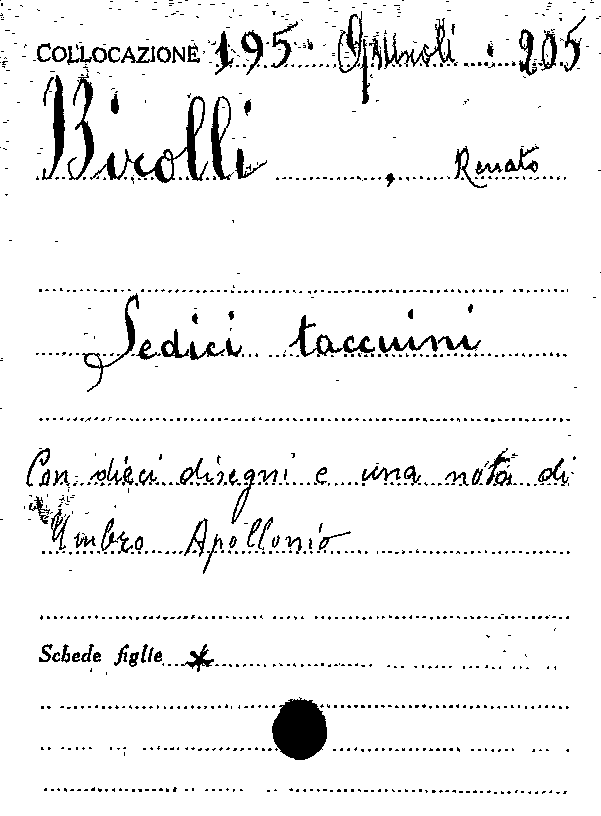 COLLOCAZIONE 195. Opuscoli . 205
Birolli , Renato
Sedici taccuini
Con dieci disegni e una nota di
Umbro Apollonio
Schede figlie *